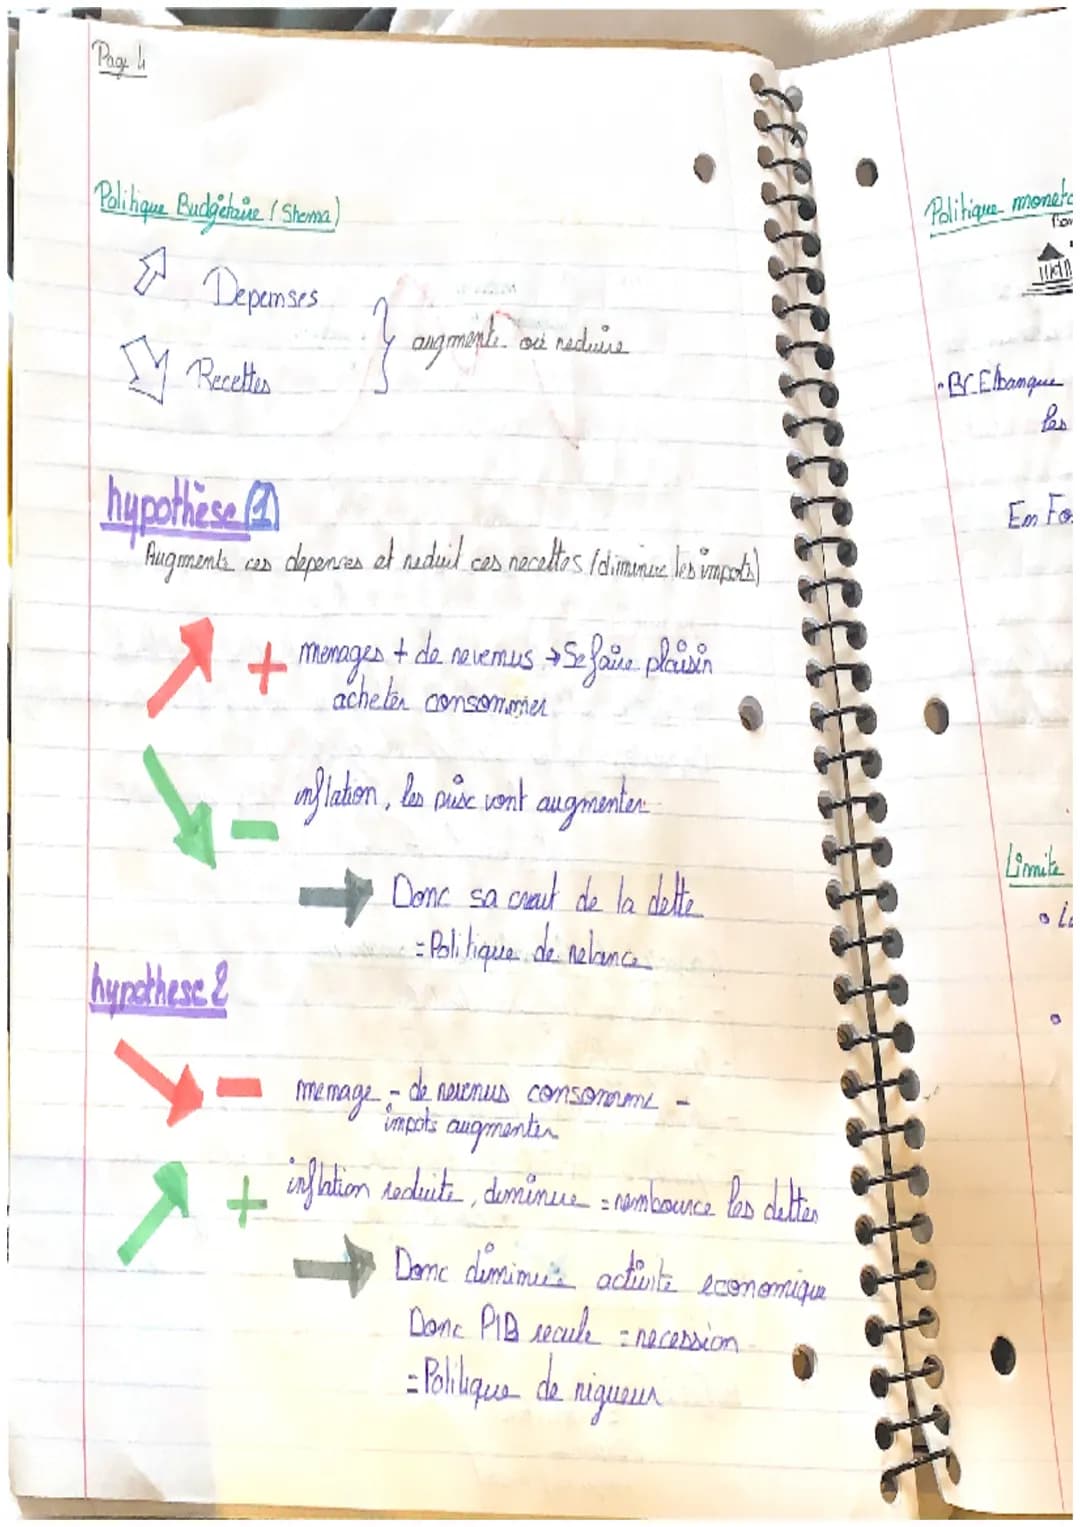 Page 4
Politique Budgétaire (Shema)
Depenses
augmente ou reduire
Recettes
hypothèse (1)
Augmente ces depenses et reduit ces recettes (diminue les impots)
+ menages + de revenus → Se faire plaisir
acheter consommer
inflation, les prix vont augmenter
-
Donc sa creut de la dette
= Politique de relance
hypothese 2
- menage - de revenus consomme -
impots augmenter
+ inflation reduite, diminue = rembource les dettes
Donc diminue activite economique
Donc PIB recule = recession
= Politique de rigueur
Politique moneta
BCE banque
les
En Fo
Limite